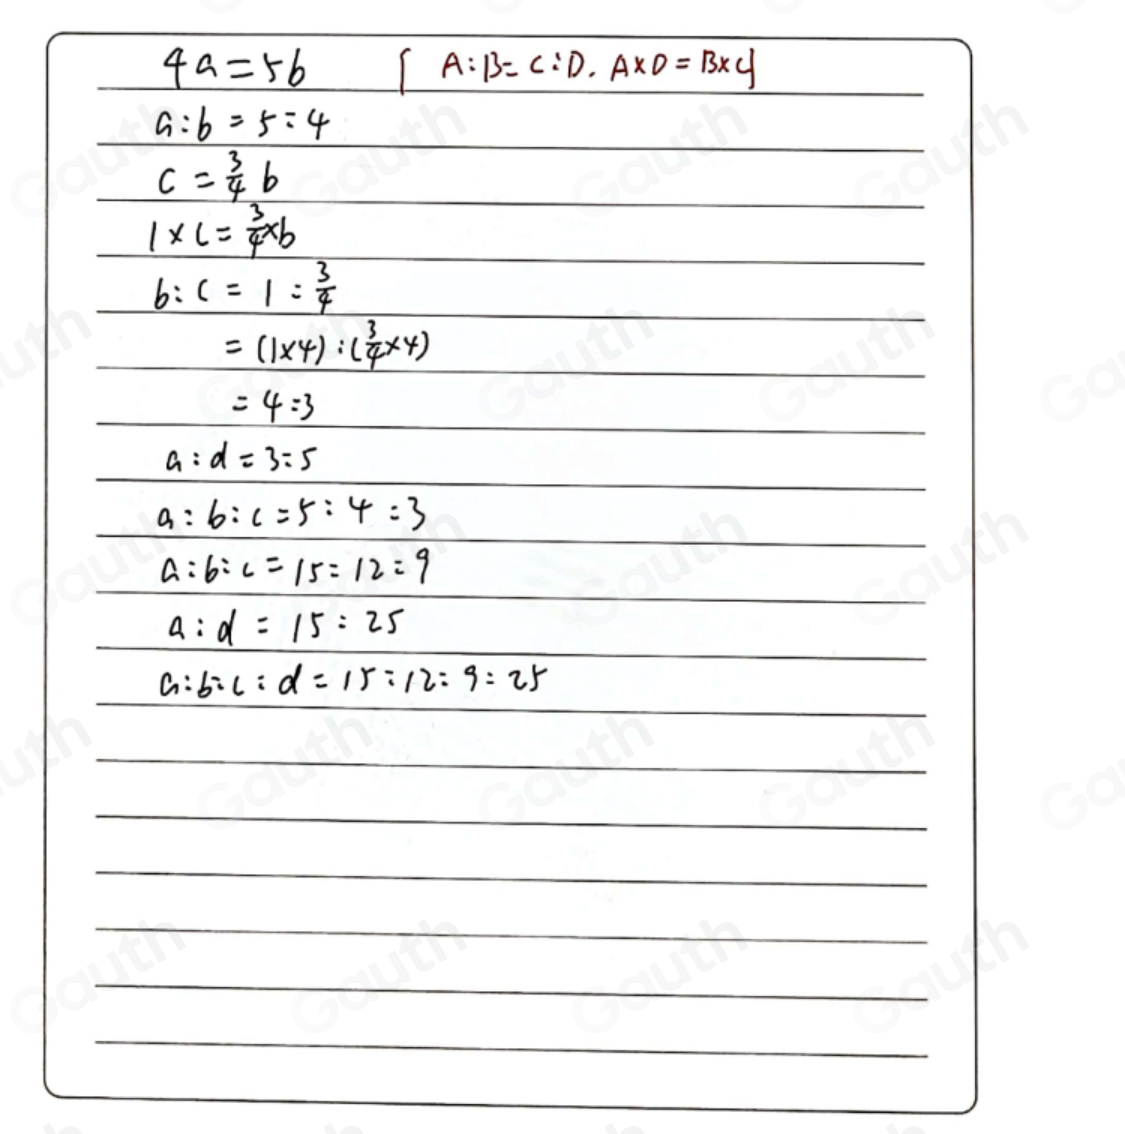 4a=5b [ A:B=C:D. A×D=B×C]
a:b=5:4
c=3/4 b
1×c=3/4×b
b:c=1:3/4
=(1×4):(3/4×4)
=4:3
a:d=3:5
a:b:c=5:4:3
a:b:c=15:12:9
a:d=15:25
a:b:c:d=15:12:9:25
Gauth